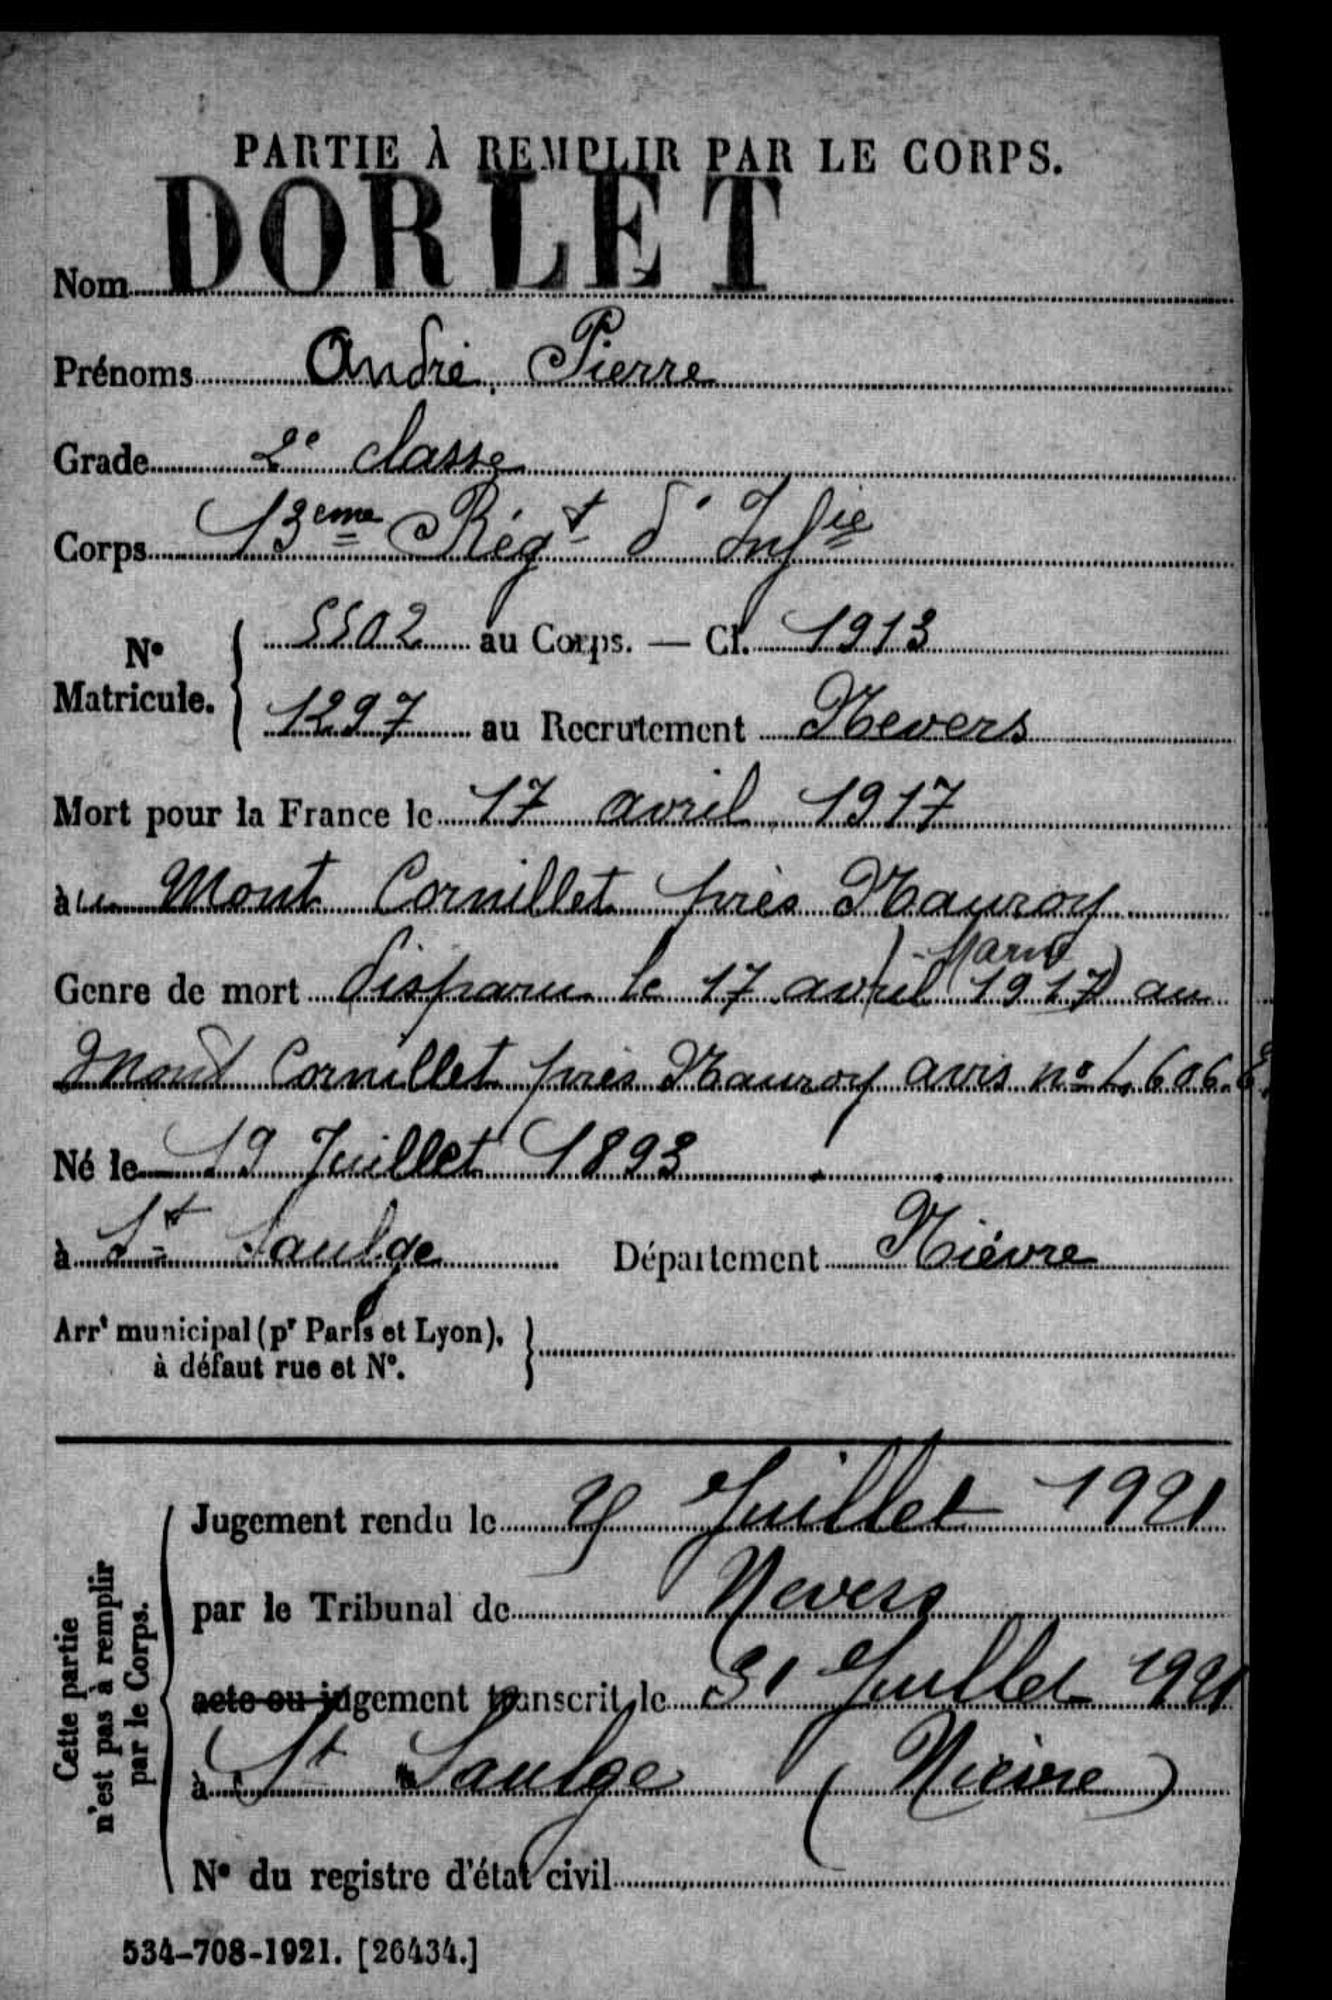 PARTIE À REMPLIR PAR LE CORPS.
Nom DORLET
Prénoms André, Pierre
Grade 2e classe
Corps 13eme Régt d'Infie
N° Matricule. { 5502 au Corps. — Cl. 1913
1297 au Recrutement Nevers
Mort pour la France le 17 avril 1917
au Mont Cornillet près Nauroy
(Marne)
Genre de mort disparu le 17 avril 1917 au
Mont Cornillet près Nauroy avis n°
Né le 19 Juillet 1893
à St Saulge Département Nièvre
Arrt municipal (pr Paris et Lyon), }
à défaut rue et N°.
Cette partie n'est pas à remplir par le Corps.
Jugement rendu le Juillet 1921
par le Tribunal de Nevers
acte ou jugement transcrit le 31 Juillet 1921
à St Saulge (Nièvre)
N° du registre d'état civil
534-708-1921. [26434.]